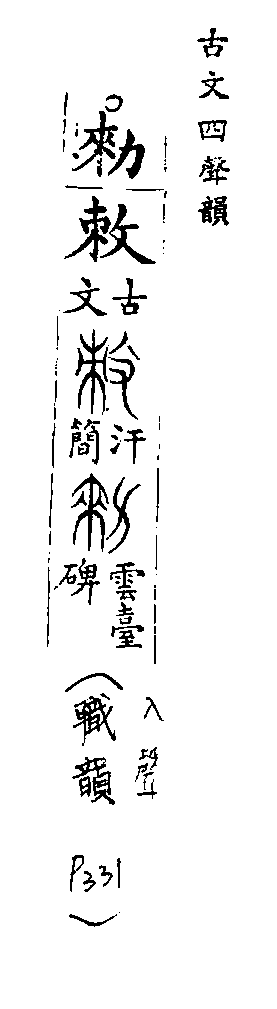 古文四聲韻
勑
敕
古文
汗簡
雲臺碑
入聲
(職韻 P331)